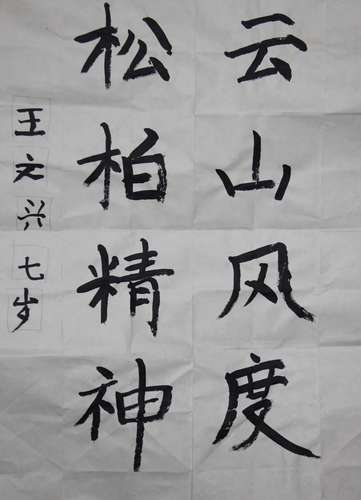 云山风度
松柏精神
王文兴七岁